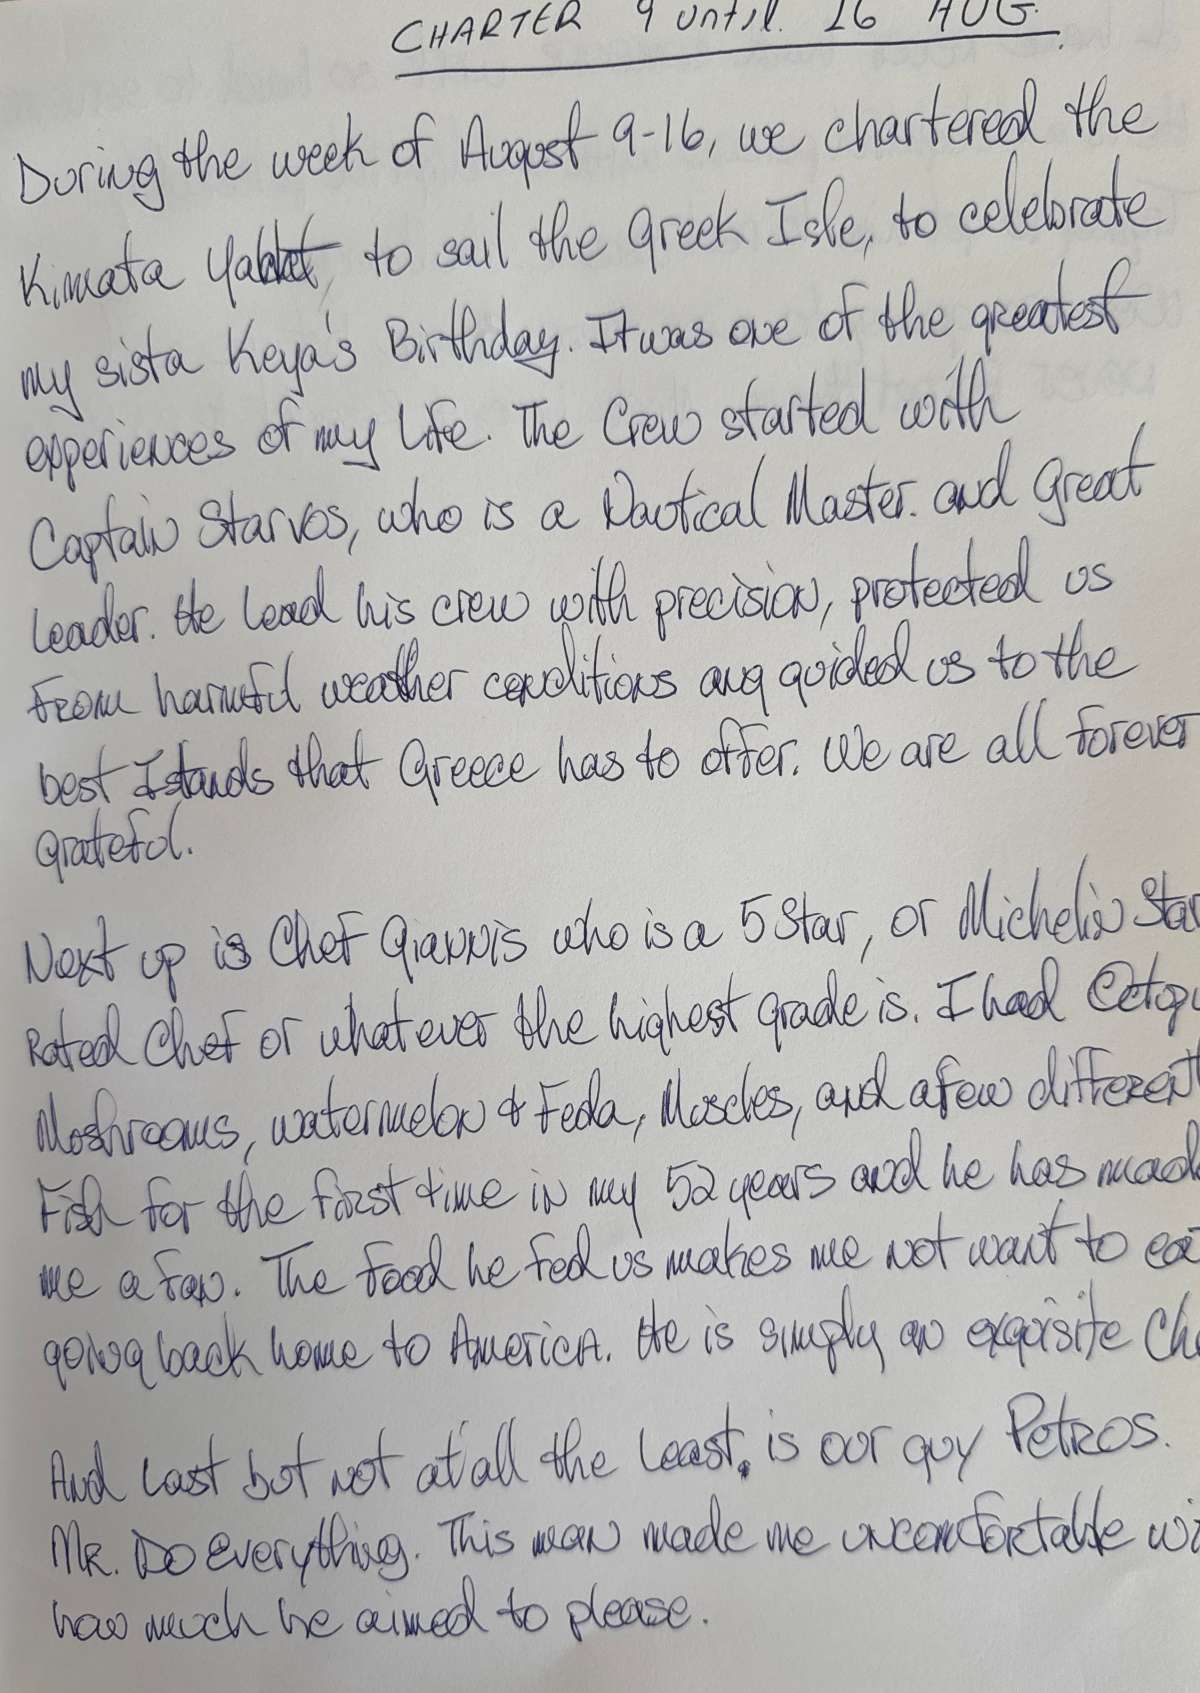 CHARTER 9 until 16 AUG.
During the week of August 9-16, we chartered the
Kimata to sail the Greek Isle, to celebrate
my sista Keya's Birthday. It was one of the greatest
experiences of my life. The Crew started with
Captain Starvos, who is a Nautical Master. and Great
leader. He lead his crew with precision, protected us
from harmful weather conditions ang guided us to the
best Islands that Greece has to offer. We are all forever
grateful.
Next up is Chef Giannis who is a 5 Star, or Michelin Star
Rated Chef or whatever the highest grade is. I had Octopu
Moshrooms, watermelon & Feda, Muscles, and a few different
Fish for the first time in my 52 years and he has mad
me a fan. The food he fed us makes me not want to ea
going back home to America. He is simply an exquisite Ch
And last but not at all the least. is our guy Petros.
Mr. Do Everything. This man made me uncomfortable wi
how much he aimed to please.